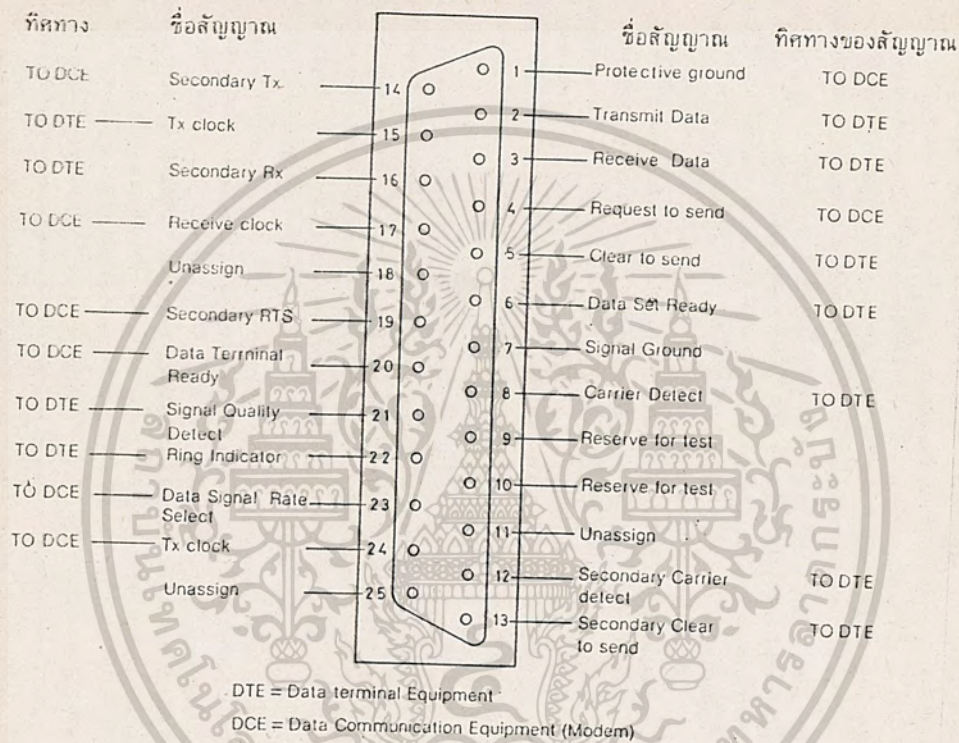 ทิศทาง ชื่อสัญญาณ ชื่อสัญญาณ ทิศทางของสัญญาณ
TO DCE Secondary Tx 14
TO DTE Tx clock 15
TO DTE Secondary Rx 16
TO DCE Receive clock 17
Unassign 18
TO DCE Secondary RTS 19
TO DCE Data Terminal 20
Ready
TO DTE Signal Quality 21
Detect
TO DTE Ring Indicator 22
TO DCE Data Signal Rate 23
Select
TO DCE Tx clock 24
Unassign 25
1 Protective ground TO DCE
2 Transmit Data TO DTE
3 Receive Data TO DTE
4 Request to send TO DCE
5 Clear to send TO DTE
6 Data Set Ready TO DTE
7 Signal Ground
8 Carrier Detect TO DTE
9 Reserve for test
10 Reserve for test
11 Unassign
12 Secondary Carrier TO DTE
detect
13 Secondary Clear TO DTE
to send
DTE = Data terminal Equipment
DCE = Data Communication Equipment (Modem)